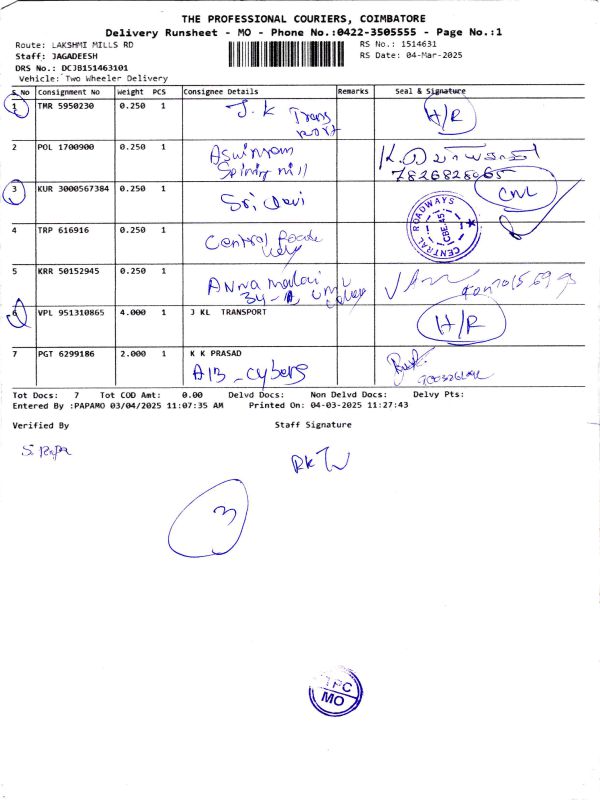 THE PROFESSIONAL COURIERS, COIMBATORE
Delivery Runsheet - MO - Phone No.:0422-3505555 - Page No.:1
Route: LAKSHMI MILLS RD
RS No.: 1514631
Staff: JAGADEESH
RS Date: 04-Mar-2025
DRS No.: DCJB151463101
Vehicle: Two Wheeler Delivery
S.No Consignment No Weight PCS Consignee Details Remarks Seal & Signature
1 TMR 5950230 0.250 1 J.K Transport H/R
2 POL 1700900 0.250 1
Spinng mill
7826828065
3 KUR 3000567384 0.250 1 Sri Devi
CENTRAL ROADWAYS
CBE-45
4 TRP 616916 0.250 1 Central
5 KRR 50152945 0.250 1 Anna malai
6 VPL 951310865 4.000 1 J KL TRANSPORT H/R
7 PGT 6299186 2.000 1 K K PRASAD
A13 - Cybers
Tot Docs: 7 Tot COD Amt: 0.00 Delvd Docs: Non Delvd Docs: Delvy Pts:
Entered By :PAPAMO 03/04/2025 11:07:35 AM Printed On: 04-03-2025 11:27:43
Verified By Staff Signature
3
TPC
MO